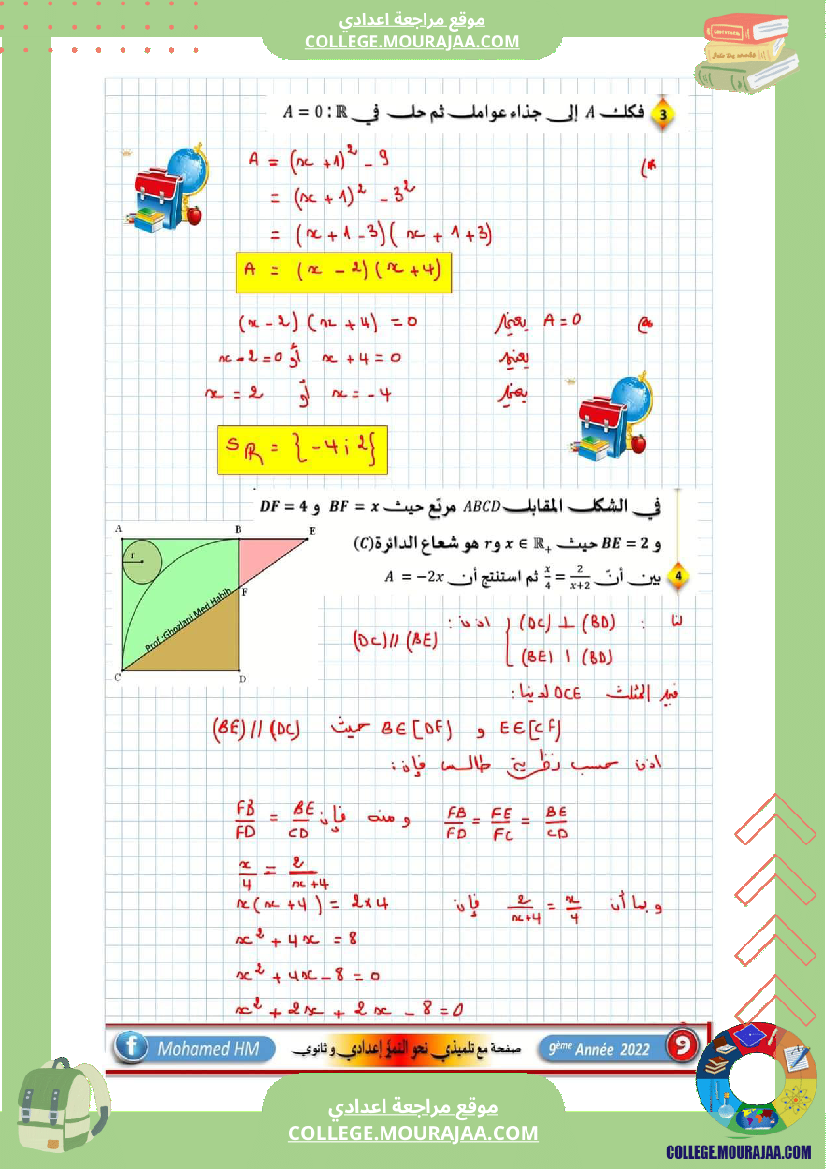 موقع مراجعة اعدادي
COLLEGE.MOURAJAA.COM
3 فكك A إلى جذاء عوامل ثم حل في A = 0 : ℝ
A = (x + 1)² - 9
= (x + 1)² - 3²
= (x + 1 - 3)(x + 1 + 3)
A = (x - 2)(x + 4)
A = 0 يعني (x - 2)(x + 4) = 0
يعني x - 2 = 0 أو x + 4 = 0
يعني x = 2 أو x = -4
Sℝ = {-4 ; 2}
في الشكل المقابل ABCD مربّع حيث BF = x و DF = 4
و BE = 2 حيث x ∈ ℝ₊ و r هو شعاع الدائرة (C)
4 بين أنّ x/4 = 2/(x+2) ثم استنتج أن A = -2x
A B E
r
F
Prof.:Ghozlani Med Habib
C D
لنا : (DC) ⊥ (BD)
(BE) ⊥ (BD)
اذن : (DC) // (BE)
في المثلث DCE لدينا :
E ∈ [CF) و B ∈ [DF) حيث (BE) // (DC)
اذن حسب نظرية طالس فإن :
FB/FD = FE/FC = BE/CD ومنه فإن FB/FD = BE/CD
x/4 = 2/(x+4)
وبما أن 2/(x+4) = x/4 فإن x(x + 4) = 2×4
x² + 4x = 8
x² + 4x - 8 = 0
x² + 2x + 2x - 8 = 0
Mohamed HM
صفحة مع تلميذي نحو التميّز إعدادي و ثانوي
9ème Année 2022
9
موقع مراجعة اعدادي
COLLEGE.MOURAJAA.COM
COLLEGE.MOURAJAA.COM